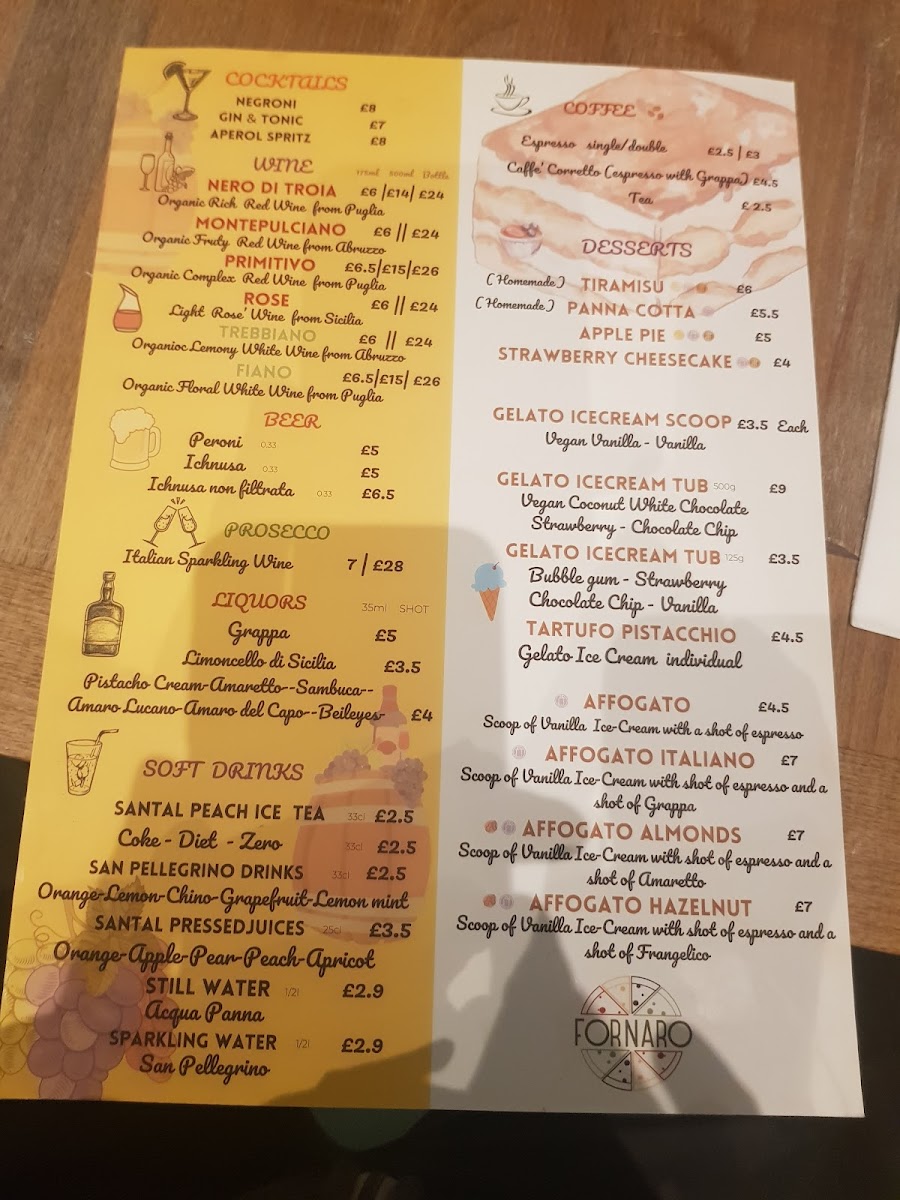 COCKTAILS
NEGRONI £8
GIN & TONIC £7
APEROL SPRITZ £8
WINE 175ml 500ml Bottle
NERO DI TROIA £6 |£14| £24
Organic Rich Red Wine from Puglia
MONTEPULCIANO £6 || £24
Organic Fruty Red Wine from Abruzzo
PRIMITIVO £6.5|£15|£26
Organic Complex Red Wine from Puglia
ROSE £6 || £24
Light Rose' Wine from Sicilia
TREBBIANO £6 || £24
Organioc Lemony White Wine from Abruzzo
FIANO £6.5|£15| £26
Organic Floral White Wine from Puglia
BEER
Peroni 0.33 £5
Ichnusa 0.33 £5
Ichnusa non filtrata 0.33 £6.5
PROSECCO
Italian Sparkling Wine 7 | £28
LIQUORS 35ml SHOT
Grappa £5
Limoncello di Sicilia £3.5
Pistacho Cream-Amaretto--Sambuca--
Amaro Lucano-Amaro del Capo--Beileyes- £4
SOFT DRINKS
SANTAL PEACH ICE TEA 33cl £2.5
Coke - Diet - Zero 33cl £2.5
SAN PELLEGRINO DRINKS 33cl £2.5
Orange-Lemon-Chino-Grapefruit-Lemon mint
SANTAL PRESSEDJUICES 25cl £3.5
Orange-Apple-Pear-Peach-Apricot
STILL WATER 1/2l £2.9
Acqua Panna
SPARKLING WATER 1/2l £2.9
San Pellegrino
COFFEE
Espresso single/double £2.5 | £3
Caffe' Corretto (espresso with Grappa) £4.5
Tea £ 2.5
DESSERTS
(Homemade) TIRAMISU £6
(Homemade) PANNA COTTA £5.5
APPLE PIE £5
STRAWBERRY CHEESECAKE £4
GELATO ICECREAM SCOOP £3.5 Each
Vegan Vanilla - Vanilla
GELATO ICECREAM TUB 500g £9
Vegan Coconut White Chocolate
Strawberry - Chocolate Chip
GELATO ICECREAM TUB 125g £3.5
Bubble gum - Strawberry
Chocolate Chip - Vanilla
TARTUFO PISTACCHIO £4.5
Gelato Ice Cream individual
AFFOGATO £4.5
Scoop of Vanilla Ice-Cream with a shot of espresso
AFFOGATO ITALIANO £7
Scoop of Vanilla Ice-Cream with shot of espresso and a
shot of Grappa
AFFOGATO ALMONDS £7
Scoop of Vanilla Ice-Cream with shot of espresso and a
shot of Amaretto
AFFOGATO HAZELNUT £7
Scoop of Vanilla Ice-Cream with shot of espresso and a
shot of Frangelico
FORNARO